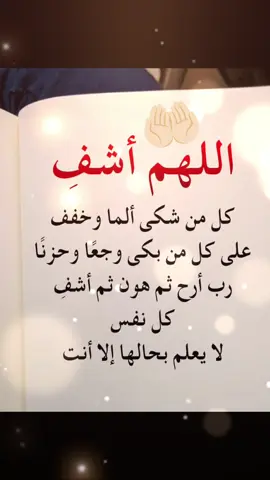 اللهم أشفِ
كل من شكى ألما وخفف
على كل من بكى وجعًا وحزنًا
رب أرح ثم هون ثم أشفِ
كل نفس
لا يعلم بحالها إلا أنت